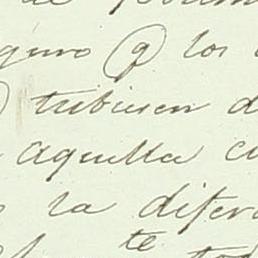 de
guro q los
tubiesen d
aquella c
la difer
te